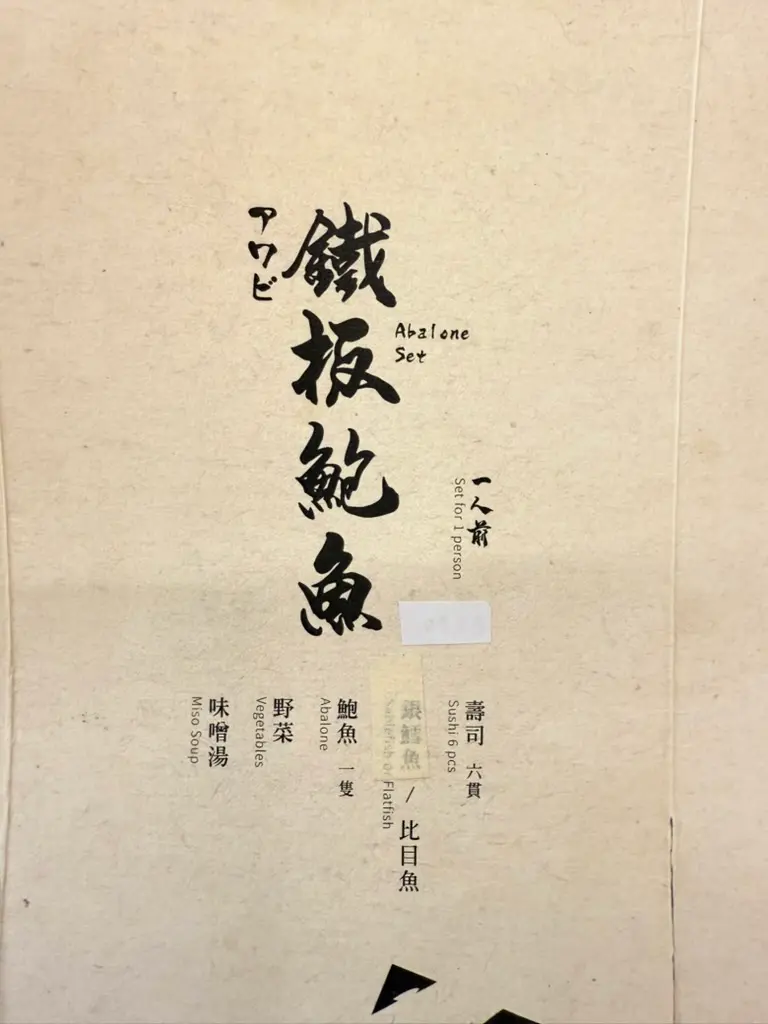 一人前
Set for 1 person
Abalone
Set
鐵板鮑魚
アワビ
壽司 六貫
Sushi 6 pcs
/ 比目魚
or Flatfish
鮑魚 一隻
Abalone
野菜
Vegetables
味噌湯
Miso Soup